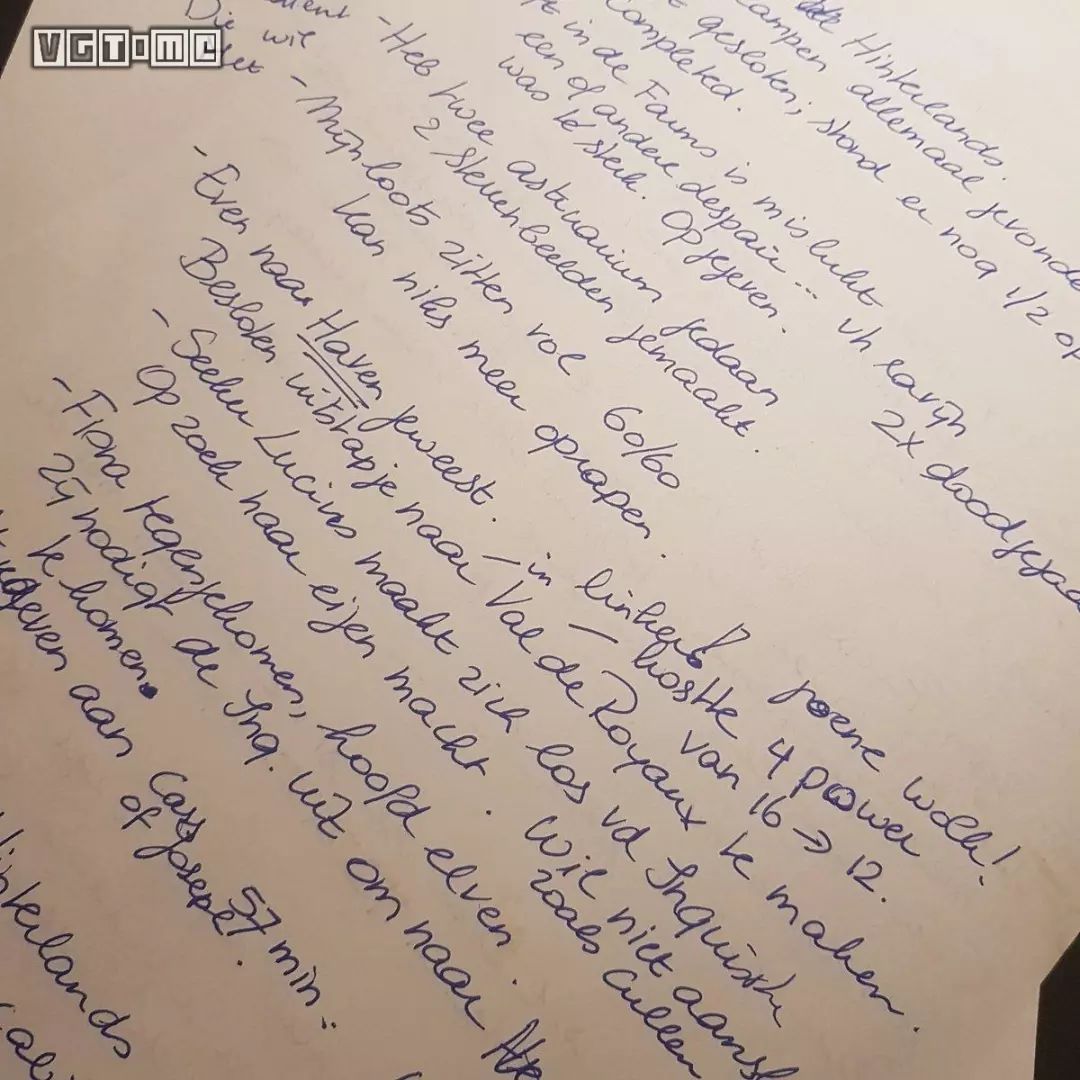 VGTIME
Hinterlands.
kampen allemaal gevonden
gesloten, stond er nog 1/2 of
completed.
in de Farms is mislukt vh ravijn
een of andere despair... 2x doodgegaan
was te sterk. Opgegeven.
- Heb twee astrarium gedaan
2 steukenbeelden gemaakt.
Die wil
- Mijn loots zitten vol 60/60
kan niks meer oprapen.
- Even naar Haven geweest. - in linkers! groene wolk!
Besloten uitstapje naar Val de Royaux te maken.
- kostte 4 power
van 16 → 12.
- Seeker Lucius maakt zich los vd Inquisitie
Op zoek naar eigen macht. Wil niet aansl
zoals Cullen
- Fiona tegengekomen, hoofd elven.
Zij nodigt de Inq. uit om naar
te komen.
geven aan Cass
of Josep.
57 min.
Hinterlands